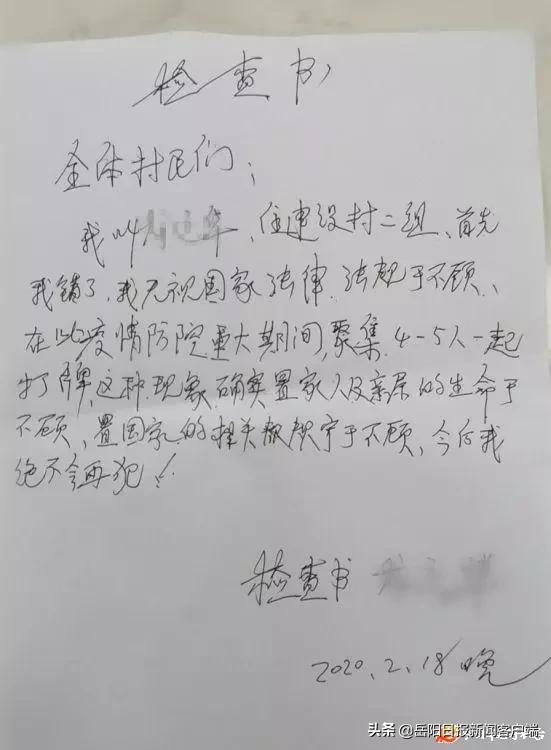 检查书
全体村民们；
我叫 、住建设村二组、首先
我错了，我无视国家法律、法规于不顾、
在此疫情防院重大期间，聚集4-5人一起
打牌，这种现象，确实置家人及亲居的生命于
不顾，置国家的 于不顾，今后我
绝不会再犯！
检查书
2020.2.18晚
头条@岳阳日报新闻客户端